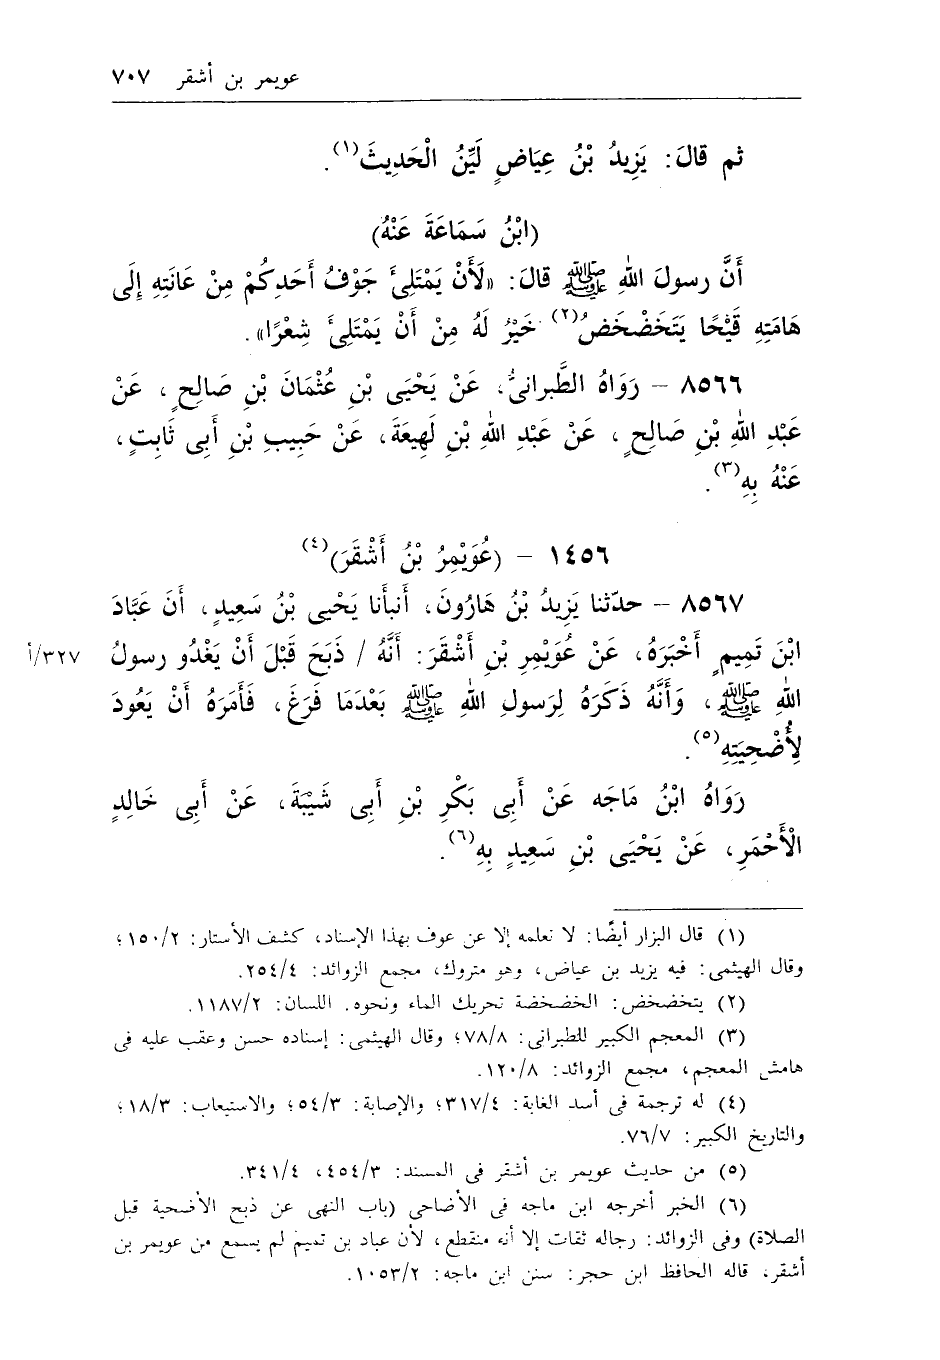 عويمر بن أشقر ٧٠٧
ثم قالَ: يَزِيدُ بْنُ عِيَاضٍ لَيِّنُ الْحَدِيثَ(١).
(ابْنُ سَمَاعَةَ عَنْهُ)
أَنَّ رسولَ اللهِ ﷺ قالَ: «لَأَنْ يَمْتَلِئَ جَوْفُ أَحَدِكُمْ مِنْ عَانَتِهِ إِلَى
هَامَتِهِ قَيْحًا يَتَخَضْخَضُ(٢) خَيْرٌ لَهُ مِنْ أَنْ يَمْتَلِئَ شِعْرًا».
٨٥٦٦ – رَوَاهُ الطَّبرانىُّ، عَنْ يَحْيَى بْنِ عُثْمَانَ بْنِ صَالِحٍ، عَنْ
عَبْدِ اللهِ بْنِ صَالِحٍ، عَنْ عَبْدِ اللهِ بْنِ لَهِيعَةَ، عَنْ حَبِيبِ بْنِ أَبِى ثَابِتٍ،
عَنْهُ بِهِ(٣).
١٤٥٦ – (عُوَيْمِرُ بْنُ أَشْقَرَ)(٤)
٨٥٦٧ – حدّثنا يَزِيدُ بْنُ هَارُونَ، أَنبأَنا يَحْيى بْنُ سَعِيدٍ، أَن عَبَّادَ
ابْنَ تَمِيمٍ أَخْبَرَهُ، عَنْ عُوَيْمِرِ بْنِ أَشْقَرَ: أَنَّهُ / ذَبَحَ قَبْلَ أَنْ يَغْدُو رسولُ ٣٢٧/أ
اللهِ ﷺ، وَأَنَّهُ ذَكَرَهُ لِرَسولِ اللهِ ﷺ بَعْدَمَا فَرَغَ، فَأَمَرَهُ أَنْ يَعُودَ
لِأُضْحِيَتِهِ(٥).
رَوَاهُ ابْنُ مَاجَه عَنْ أَبِى بَكْرِ بْنِ أَبِى شَيْبَةَ، عَنْ أَبِى خَالِدٍ
الْأَحْمَرِ، عَنْ يَحْيَى بْنِ سَعِيدٍ بِهِ(٦).
(١) قال البزار أيضًا: لا نعلمه إلا عن عوف بهذا الإسناد، كشف الأستار: ١٥٠/٢؛
وقال الهيثمى: فيه يزيد بن عياض، وهو متروك، مجمع الزوائد: ٢٥٤/٤.
(٢) يتخضخض: الخضخضة تحريك الماء ونحوه. اللسان: ١١٨٧/٢.
(٣) المعجم الكبير للطبرانى: ٧٨/٨؛ وقال الهيثمى: إسناده حسن وعقب عليه فى
هامش المعجم، مجمع الزوائد: ١٢٠/٨.
(٤) له ترجمة فى أسد الغابة: ٣١٧/٤؛ والإصابة: ٥٤/٣؛ والاستيعاب: ١٨/٣؛
والتاريخ الكبير: ٧٦/٧.
(٥) من حديث عويمر بن أشقر فى المسند: ٤٥٤/٣، ٣٤١/٤.
(٦) الخبر أخرجه ابن ماجه فى الأضاحى (باب النهى عن ذبح الأضحية قبل
الصلاة) وفى الزوائد: رجاله ثقات إلا أنه منقطع، لأن عباد بن تميم لم يسمع من عويمر بن
أشقر، قاله الحافظ ابن حجر: سنن ابن ماجه: ١٠٥٣/٢.